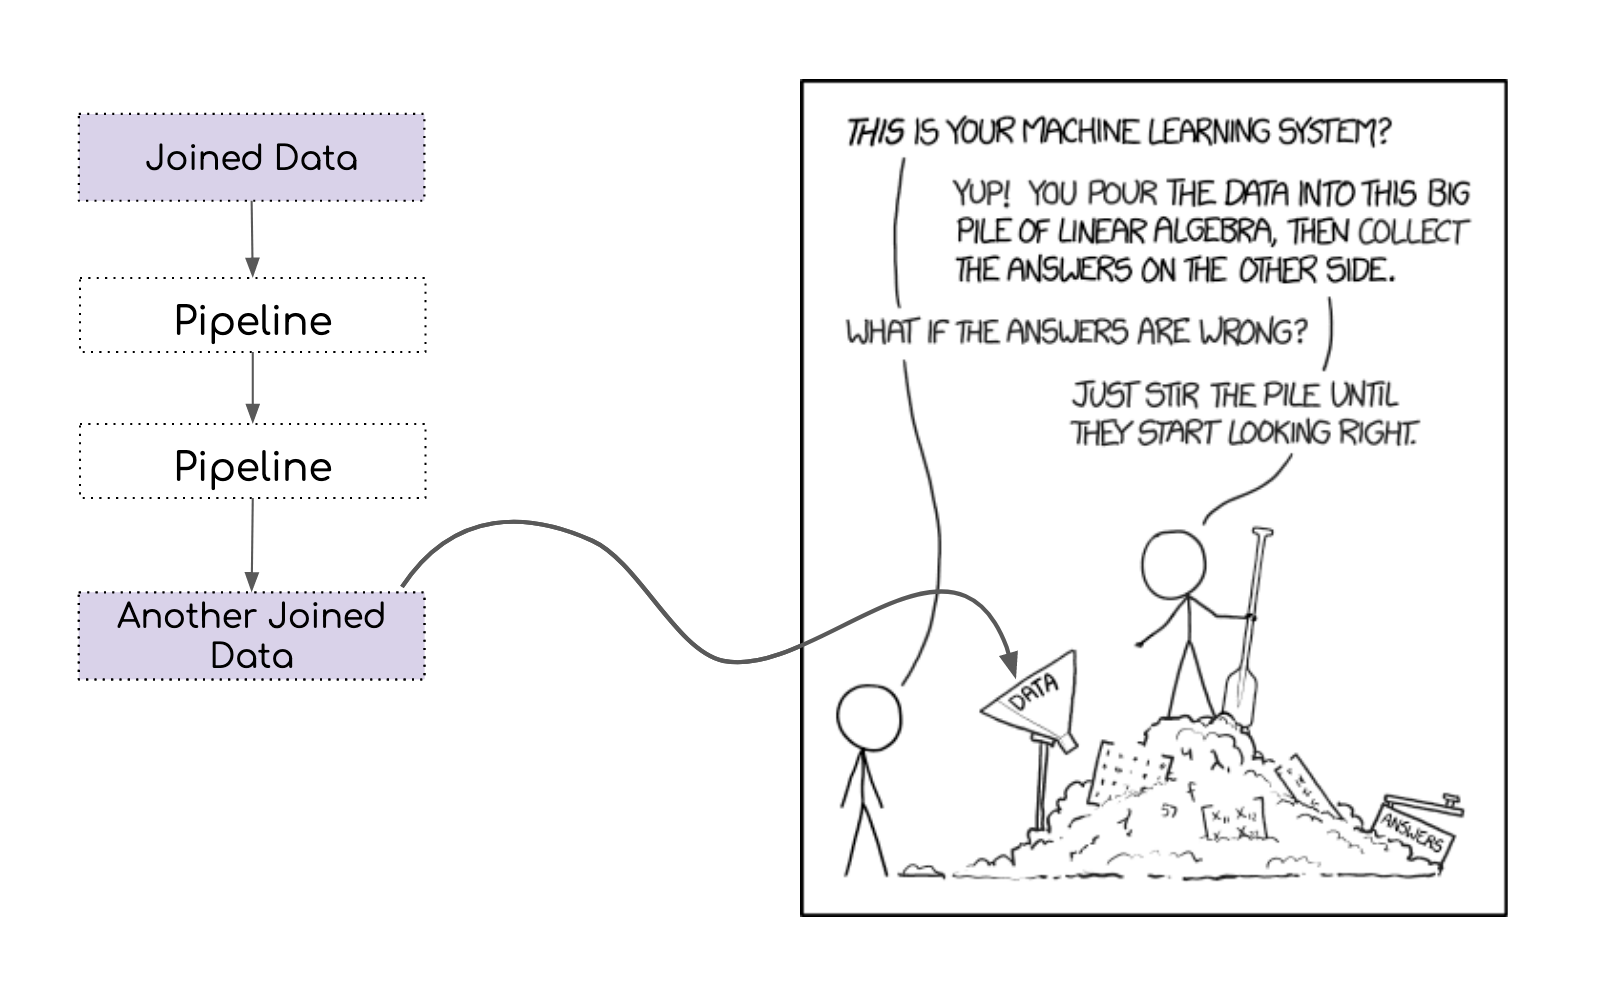 Joined Data
Pipeline
Pipeline
Another Joined
Data
THIS IS YOUR MACHINE LEARNING SYSTEM?
YUP! YOU POUR THE DATA INTO THIS BIG
PILE OF LINEAR ALGEBRA, THEN COLLECT
THE ANSWERS ON THE OTHER SIDE.
WHAT IF THE ANSWERS ARE WRONG?
JUST STIR THE PILE UNTIL
THEY START LOOKING RIGHT.
DATA
ANSWERS